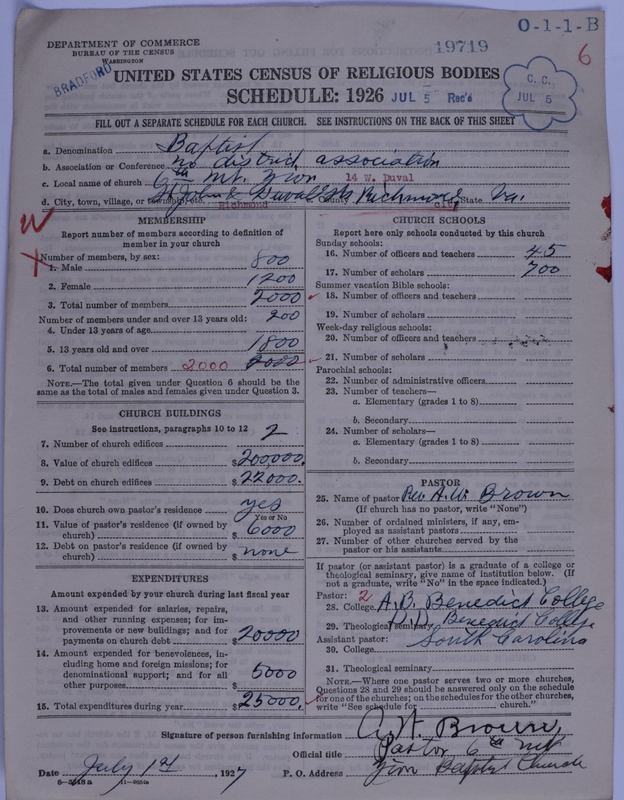 O-1-1-B
DEPARTMENT OF COMMERCE
BUREAU OF THE CENSUS
WASHINGTON
19719
6
BRADFORD
UNITED STATES CENSUS OF RELIGIOUS BODIES
SCHEDULE: 1926 JUL 5 Rec'd
C. C.
JUL 5
FILL OUT A SEPARATE SCHEDULE FOR EACH CHURCH. SEE INSTRUCTIONS ON THE BACK OF THIS SHEET
a. Denomination Baptist
b. Association or Conference no district association
c. Local name of church 6th Mt. Zion 14 W. Duval
d. City, town, village, or township, etc. St John & Duval Sts County Richmond State Va.
Richmond city
W
X
MEMBERSHIP
Report number of members according to definition of
member in your church
Number of members, by sex:
1. Male 800
2. Female 1200
3. Total number of members 2000
Number of members under and over 13 years old:
4. Under 13 years of age 200
5. 13 years old and over 1800
6. Total number of members 2000 2000
NOTE.—The total given under Question 6 should be the
same as the total of males and females given under Question 3.
CHURCH BUILDINGS
See instructions, paragraphs 10 to 12
7. Number of church edifices 2
8. Value of church edifices $200,000.
9. Debt on church edifices $22000.
10. Does church own pastor's residence yes
Yes or No
11. Value of pastor's residence (if owned by
church) $6000
12. Debt on pastor's residence (if owned by
church) $none
EXPENDITURES
Amount expended by your church during last fiscal year
13. Amount expended for salaries, repairs,
and other running expenses; for im-
provements or new buildings; and for
payments on church debt $20000
14. Amount expended for benevolences, in-
cluding home and foreign missions; for
denominational support; and for all
other purposes $5000
15. Total expenditures during year $25000
CHURCH SCHOOLS
Report here only schools conducted by this church
Sunday schools:
16. Number of officers and teachers 45
17. Number of scholars 700
Summer vacation Bible schools:
18. Number of officers and teachers
19. Number of scholars
Week-day religious schools:
20. Number of officers and teachers
21. Number of scholars
Parochial schools:
22. Number of administrative officers
23. Number of teachers—
a. Elementary (grades 1 to 8)
b. Secondary
24. Number of scholars—
a. Elementary (grades 1 to 8)
b. Secondary
PASTOR
25. Name of pastor Rev. A. W. Brown
(If church has no pastor, write "None")
26. Number of ordained ministers, if any, em-
ployed as assistant pastors
27. Number of other churches served by the
pastor or his assistants
If pastor (or assistant pastor) is a graduate of a college or
theological seminary, give name of institution below. (If
not a graduate, write "No" in the space indicated.)
Pastor: 2
28. College A.B. Benedict College
29. Theological seminary Benedict College
Assistant pastor: South Carolina
30. College
31. Theological seminary
NOTE.—Where one pastor serves two or more churches,
Questions 28 and 29 should be answered only on the schedule
for one of the churches; on the schedules for the other churches,
write "See schedule for church."
Signature of person furnishing information A. W. Brown,
Official title Pastor 6th Mt
Date July 1st, 1927 P. O. Address Zion Baptist Church